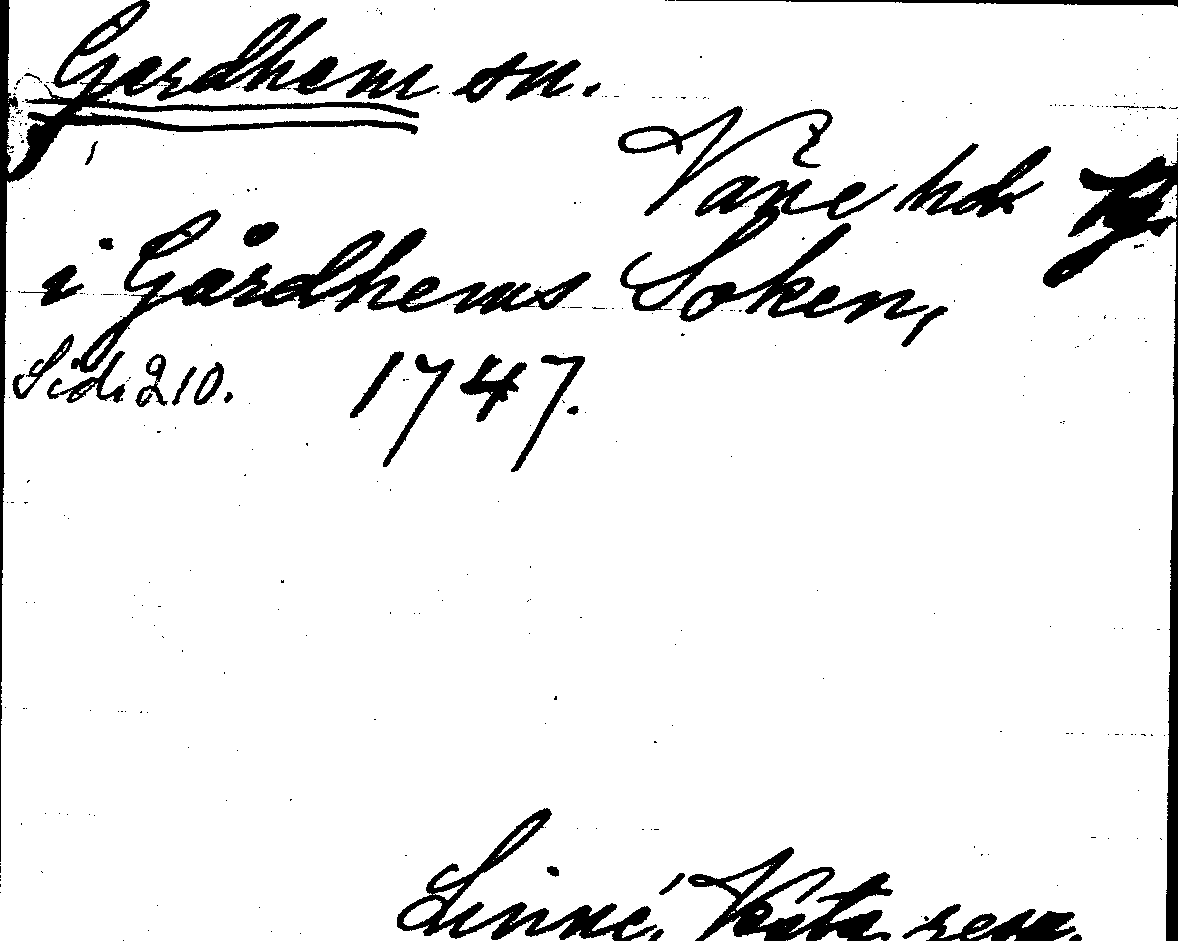 Gerdhem sn.
Väne hd.
i Gårdhems Soken,
Sid. 210. 1747.
Linné, Västg. resa.